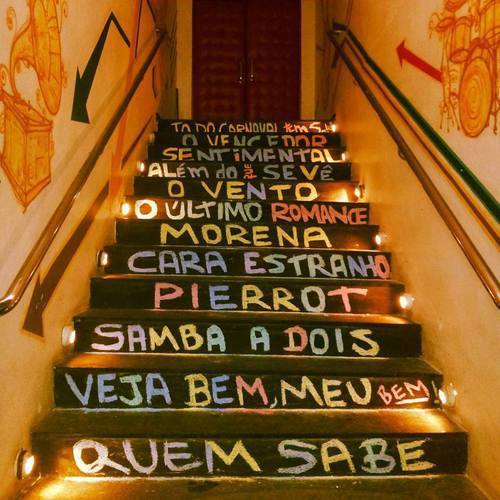 TODO CARNAVAL tEM S
O VENCEDOR
SENTIMENTAL
ALÉM do QUE SE VÊ
O VENTO
O ÚLTIMO ROMANCE
MORENA
CARA ESTRANHO
PIERROT
SAMBA A DOIS
VEJA BEM, MEU BEM!
QUEM SABE